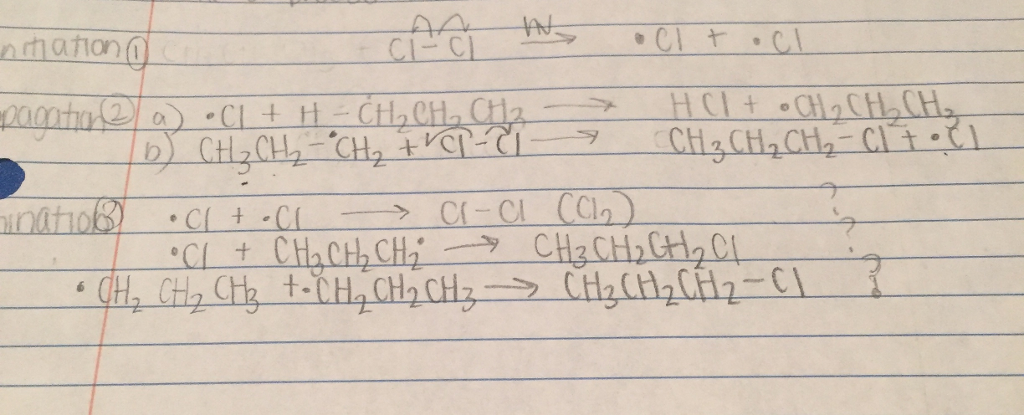 nitiation① Cl-Cl hν → •Cl + •Cl
pagation② a) •Cl + H-CH₂CH₂CH₃ → HCl + •CH₂CH₂CH₃
b) CH₃CH₂-•CH₂ + Cl-Cl → CH₃CH₂CH₂-Cl + •Cl
ination③ •Cl + •Cl → Cl-Cl (Cl₂) ?
•Cl + CH₃CH₂CH₂• → CH₃CH₂CH₂Cl ?
•CH₂CH₂CH₃ + •CH₂CH₂CH₃ → CH₃CH₂CH₂-Cl ?